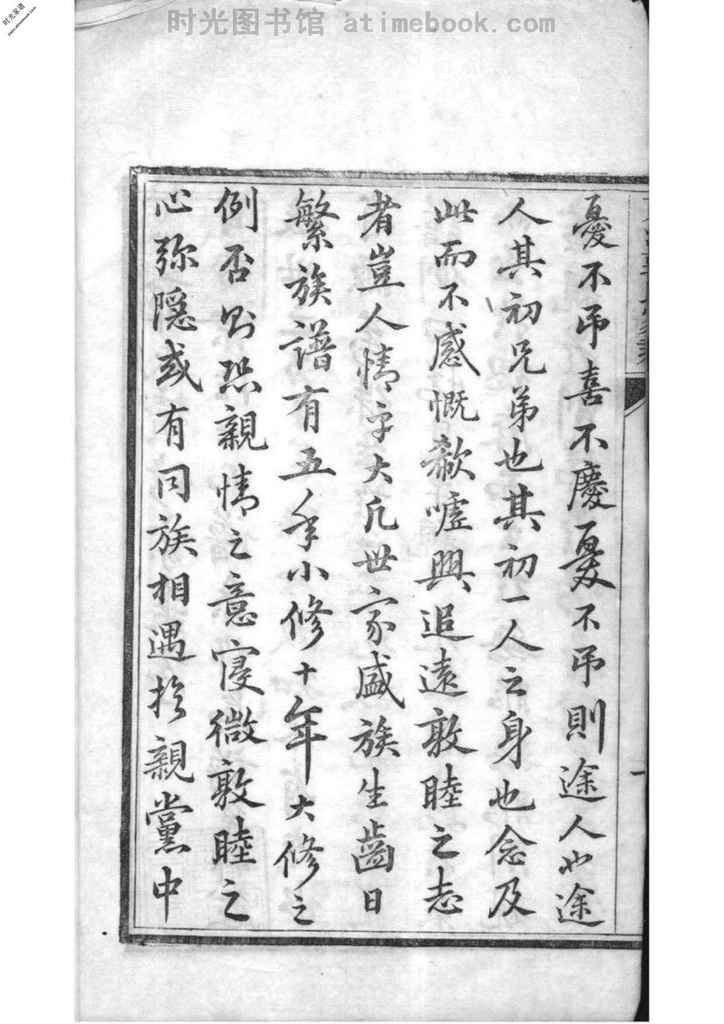 时光图书馆 atimebook.com
时光家谱
www.atimebook.com
憂不吊喜不慶憂不吊則途人也途
人其初兄弟也其初一人之身也念及
此而不感慨歔嘘興追遠敦睦之志
者豈人情乎大凡世家盛族生齒日
繁族譜有五年小修十年大修之
例否则恐親情之意寖微敦睦之
心弥隱或有同族相遇於親黨中
一